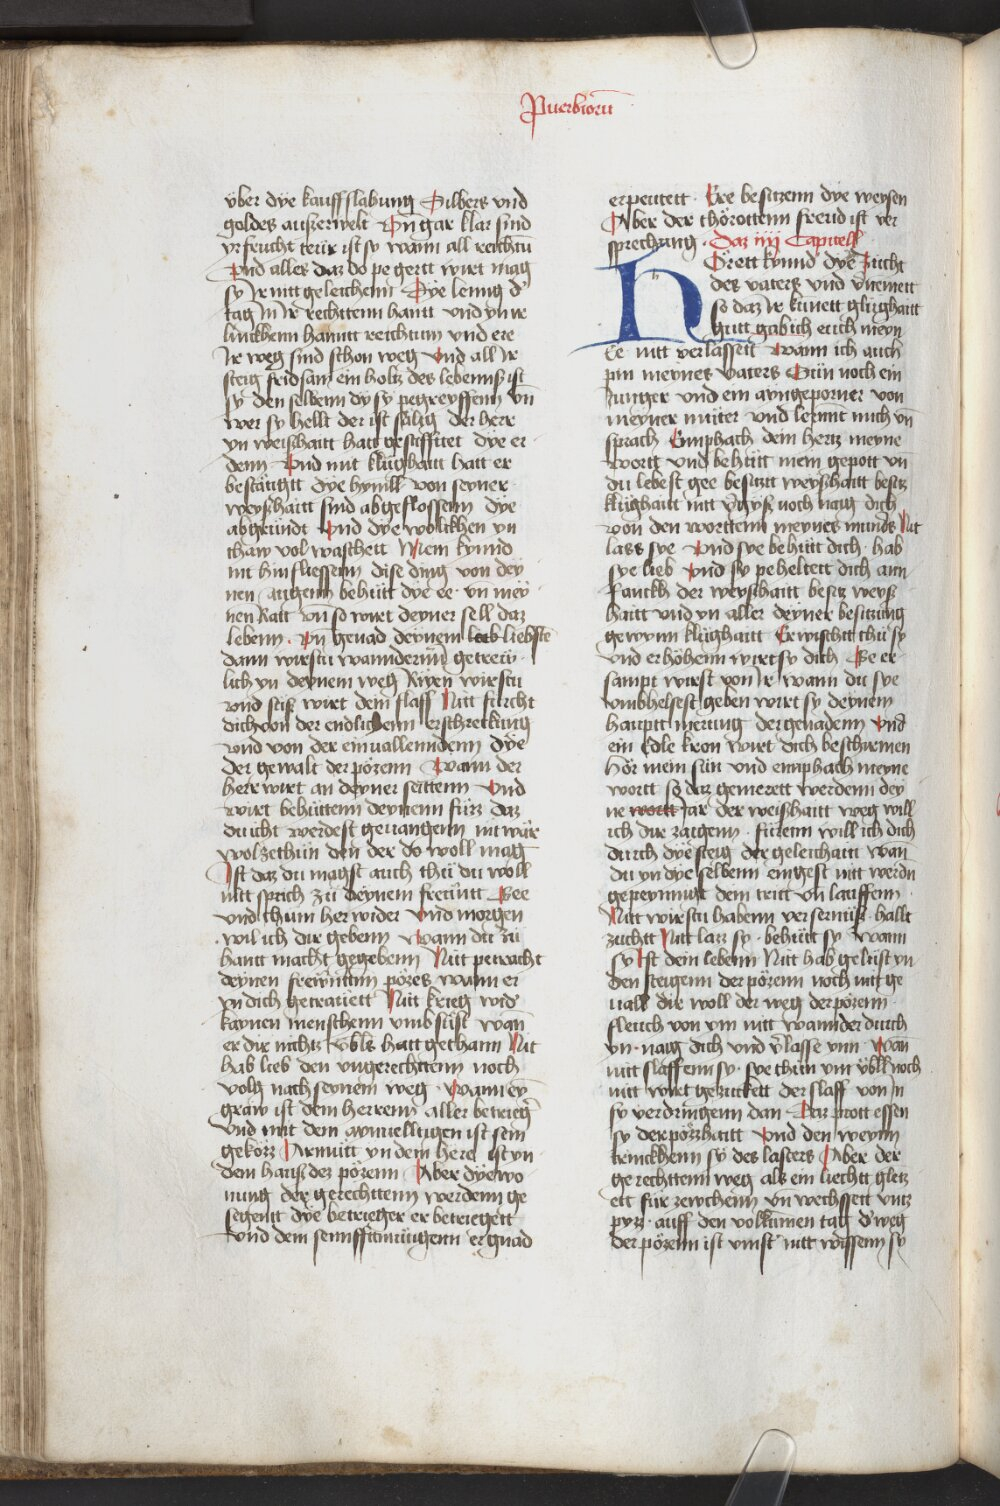 Puerbiorū
über dye kauffslabung Silbers vnd
goldes außerwelt Vn gar klar sind
yr frucht teür ist sy wann all reichtū
Vnd alles daz do pegertt wirt mag
sy Ir nitt geleichenn Dye lenng d'
tag Jn Ir rechttenn hantt vnd yn ir
linckhenn hanntt reichtum vnd ere
Ir weg sind schon weg Vnd all Ir
steig fridsam ein holtz des lebennß ist
sy den selbenn dy sy pegreyffenn vn̄
wer sy hellt der ist sälig der herr
yn weishaitt hatt gestifftet dye er
denn Vnd mit klůghaitt hatt er
bestäugtt dye hymll von seyner
weyßhaitt sind abgeflossenn dye
abgründt Vnd dye wolckhen yn
thaw vol wascheit Mein kynnd
nit hinfliessenn dise ding von dey
nen augenn behütt dye ee vn̄ mey
nen Ratt vn̄ so wirt deyner sell daz
lebenn. Vn genad deynem leb liebste
dann wirstu wannderñn getreẅ
lich yn deynem weg Rwen wirstu
vnd süß wirt dein slaff Nitt fürcht
dich von der endlichenn erschreckung
vnd von der einuallenndenn dye
der gewalt der pözenn Wann der
herr wirt an deyner seittenn Vnd
wirt behüttenn deynenn füzz daz
du icht werdest geuangenn nit wår
wolzethůn den der do woll mag
Ist daz du magst auch thů du woll
nitt sprich zů deynem freünt Gee
vnd chum her wider Vnd morgen
wil ich dir gebenn Wann du zů
hantt macht gegebenn Nitt petracht
deynen freẅnttn pözes wann er
yn dich getrauett Nitt krieg wid'
kaynen menschenn vmb süst wan̄
er dir nichtz übls hatt gethann Nit
hab lieb den vngerechttenn noch
volg nach seynem weg. Wann ey̅
graw ist dem herrenn aller betrieg
Vnd mit dem aynuelltigen ist sein
geközz Armütt yn dem herd ist yn
dem hauß dez pözenn Aber dye wo
nung der gerechttenn werdenn ge
segentt dye betrieger er betriegett
Vnd dem sennfftmütigenn er gnad
erpeuteit. Ere besitzenn dye weysen
Aber der thörottenn freud ist ver
sprechung. Daz iiij Capitell
Hörett kynnd dye zucht
des vaters vnd vnemett
so daz Ir kunett glůghaitt
gůtt gab ich euch meyn
Ee nitt verlassett Wann ich auch
pin meynes vaters Sün noch ein
Junger vnd ein ayngeporner von
meyner můter vnd lerntt mich vn̄
sprach Emphach dein hertz meyne
wortt vnd behütt mein gepott vn̄
du lebest gee besitzt weyßhaitt besitz
klůghaitt nitt v̓gyß noch naig dich
von den worttenn meynes munds Nit
lass sye Vnd sye behütt dich. hab
sye lieb Vnd sy peheltett dich ann
fanckh der weyßhaitt besitz weyß
haitt vnd yn aller deyner besitzung
gewynn klůghaitt Erwischtt thů sy
vnd erhöhenn wirt sy dich So er
sampt wirst von Ir wann du sye
vmbhelsest geben wirt sy deynem
hauptt merung der genadenn Vnd
ein Edle kron wirt dich beschirmen
Hör mein sün vnd emphach meyne
wortt so daz gemerett werdenn dey
ne wortt Jar der weißhaitt weg will
ich dir zaigenn. fürenn will ich dich
durch dye steig der geleichait wan̄
du yn dye selbenn eingest nitt werdn̄
gepeynnigt dein tritt vn lauffenn
Nitt wirstu habenn versernüß. hallt
zuchtt Nitt laz sy. behütt sy wann
sy Ist dein lebenn Nitt hab gelüst yn
den steigenn der pözenn noch nitt ge
uall dir woll der weg der pözenn
fleuch von ym nitt wannder durch
yn. naig dich vnd v̓lasse ynn. wan̄
nitt slaffenn sy. sye thün ym übll noch
nitt wirt gezuckett der slaff von Jn
sy verdringenn dan Daz prott essen
sy der pözzhaitt Vnd den weynn
trinckhenn sy des lasters Aber der
gerechttenn weg als ein liechtt gletz
ett für zewchenn vn̄ wechssett vntz
pyzz. auff den volkumen tag d' weg
der pözenn ist vinst' nitt wissenn sy